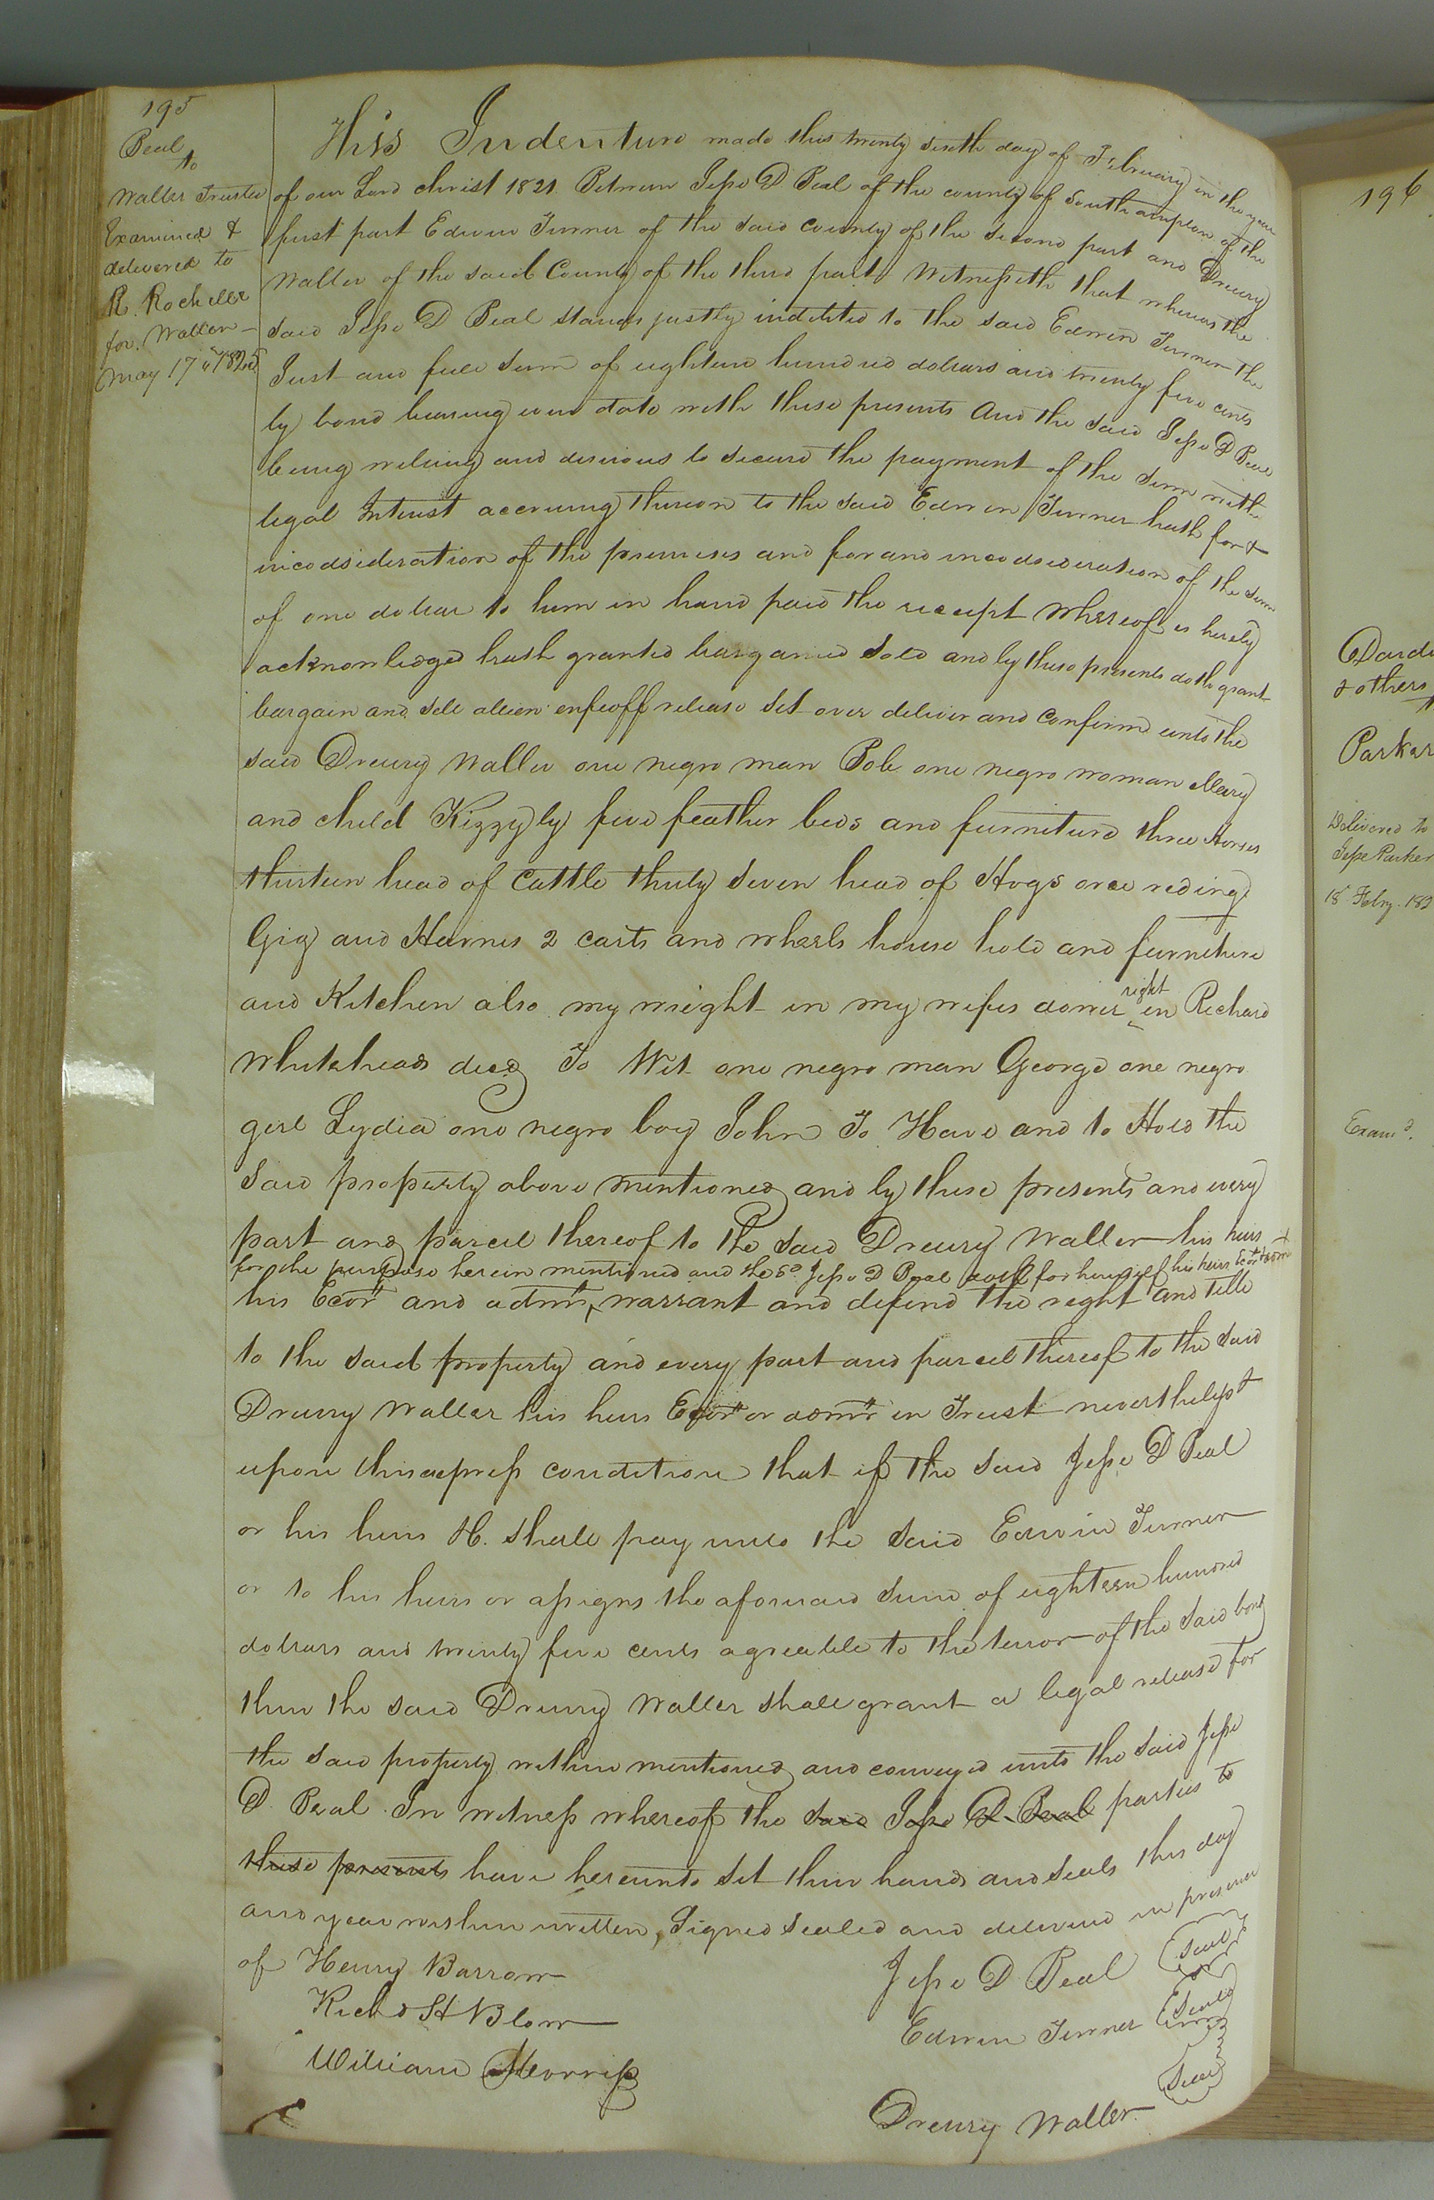 195
Peal
to
Waller Trustee
Examined &
delivered to
R. Rochelle
for Waller
May 17th 1825
This Indenture made this twenty sixth day of February in the year
of our Lord christ 1821 Between Jesse D Peal of the county of Southampton of the
first part Edwin Turner of the said county of the second part and Drewry
Waller of the said County of the third part Witnesseth that whereas the
said Jesse D Peal stands justly indebted to the said Edwin Turner the
Just and full sum of eighteen hundred dollars and twenty five cents
by bond bearing even date with these presents And the said Jesse D Peal
being willing and desirous to secure the payment of the sum with
legal Interest accruing thereon to the said Edwin Turner hath for &
incodsideration of the premises and for and incodsideration of the sum
of one dollar to him in hand paid the receipt whereof is hereby
acknowledged hath granted bargained sold and by these presents doth grant
bargain and sell alien enfeoff release set over deliver and confirm unto the
said Drewry Waller one negro man Bob one negro woman Mary
and child Kizzy by five feather beds and furniture three Horses
thirteen head of Cattle thirty seven head of Hogs one reding
Gig and Harnis 2 carts and wheels house hold and furniture
and Kitchen also my wright in my wifes dower right in Richard
Whiteheads decd To Wit one negro man George one negro
girl Lydia one negro boy John To Have and to Hold the
said property above mentioned and by these presents and every
part and parcel thereof to the said Drewry Waller his heirs
for the purpose herein mentioned and the sd Jesse D Peal doth for himself his heirs
his Ecors and admrs warrant and defend the right and title
to the said property and every part and parcel thereof to the said
Drewry Waller his heirs Ecors or admrs in Trust nevertheless &
upon this express condition that if the said Jesse D Peal
or his heirs H. shall pay unto the said Edwin Turner
or to his heirs or assigns the aforesaid sum of eighteen hundred
dollars and twenty five cents agreeable to the tenor of the said bond
then the said Drewry Waller shall grant a legal release for
the said property within mentioned and conveyed unto the said Jesse
D. Peal. In witness whereof the said Jesse D. Peal parties to
these presents have hereunto set their hands and seals this day
and year within written, Signed sealed and delivered in presence
of Henry Barrow
Jesse D Peal Seal
Richd H Blow
Edwin Turner Seal
William Morriss
Drewry Waller Seal
196
& others
Parker
Delivered to
Jesse Parker
Examd.